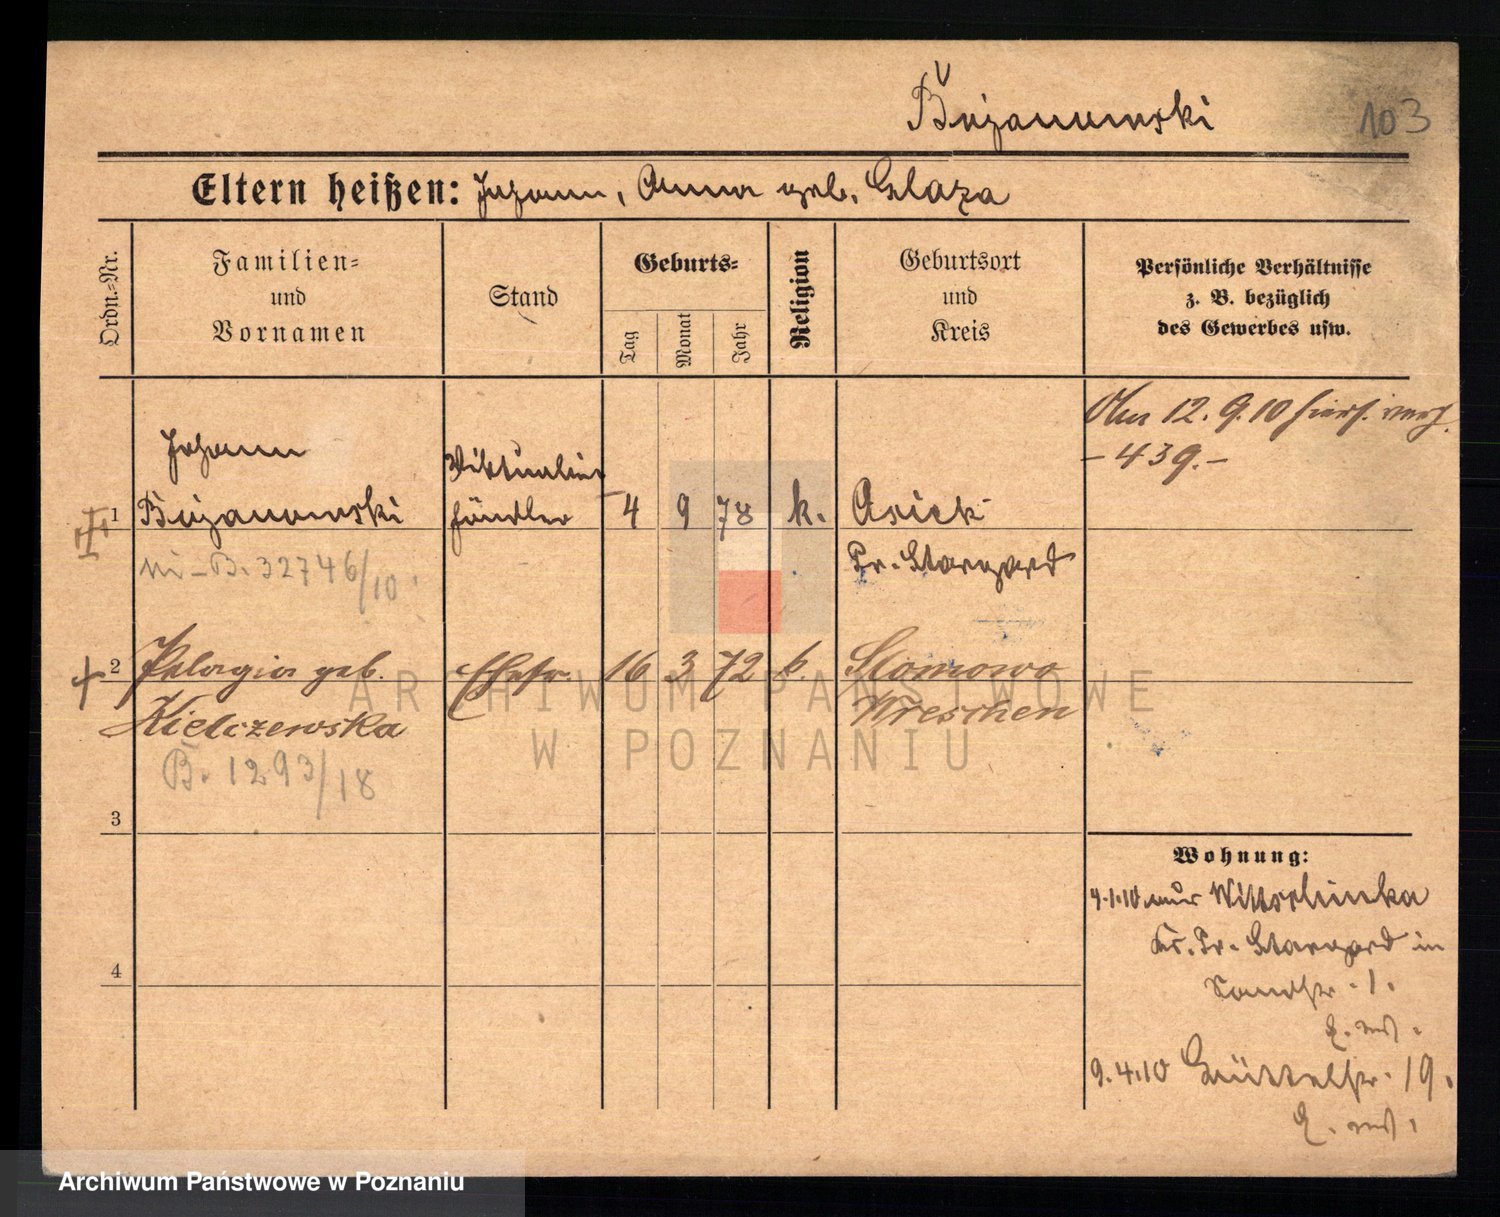 Bujanowski
103
Eltern heißen: Johann, Anna geb. Glaza
Ordn.-Nr.
Familien-
und
Vornamen
Stand
Geburts-
Tag
Monat
Jahr
Religion
Geburtsort
und
Kreis
Persönliche Verhältnisse
z. B. bezüglich
des Gewerbes usw.
Am 12. 9. 10 hiers. verh.
- 439. -
Johann Viktualien
1 Bujanowski händler 4 9 78 k. Osiek
Pr. Stargard
B. 32746/10
2 Pelagia geb. Ehefr. 16 3 72 k. Slomowo
Kielczewska Wreschen
B. 1293/18
3
4
Wohnung:
4.1.10 aus
Kr. Pr. Stargard in
Sandstr. 1.
9.4.10 Büttelstr. 19.
ARCHIWUM PAŃSTWOWE
W POZNANIU
Archiwum Państwowe w Poznaniu